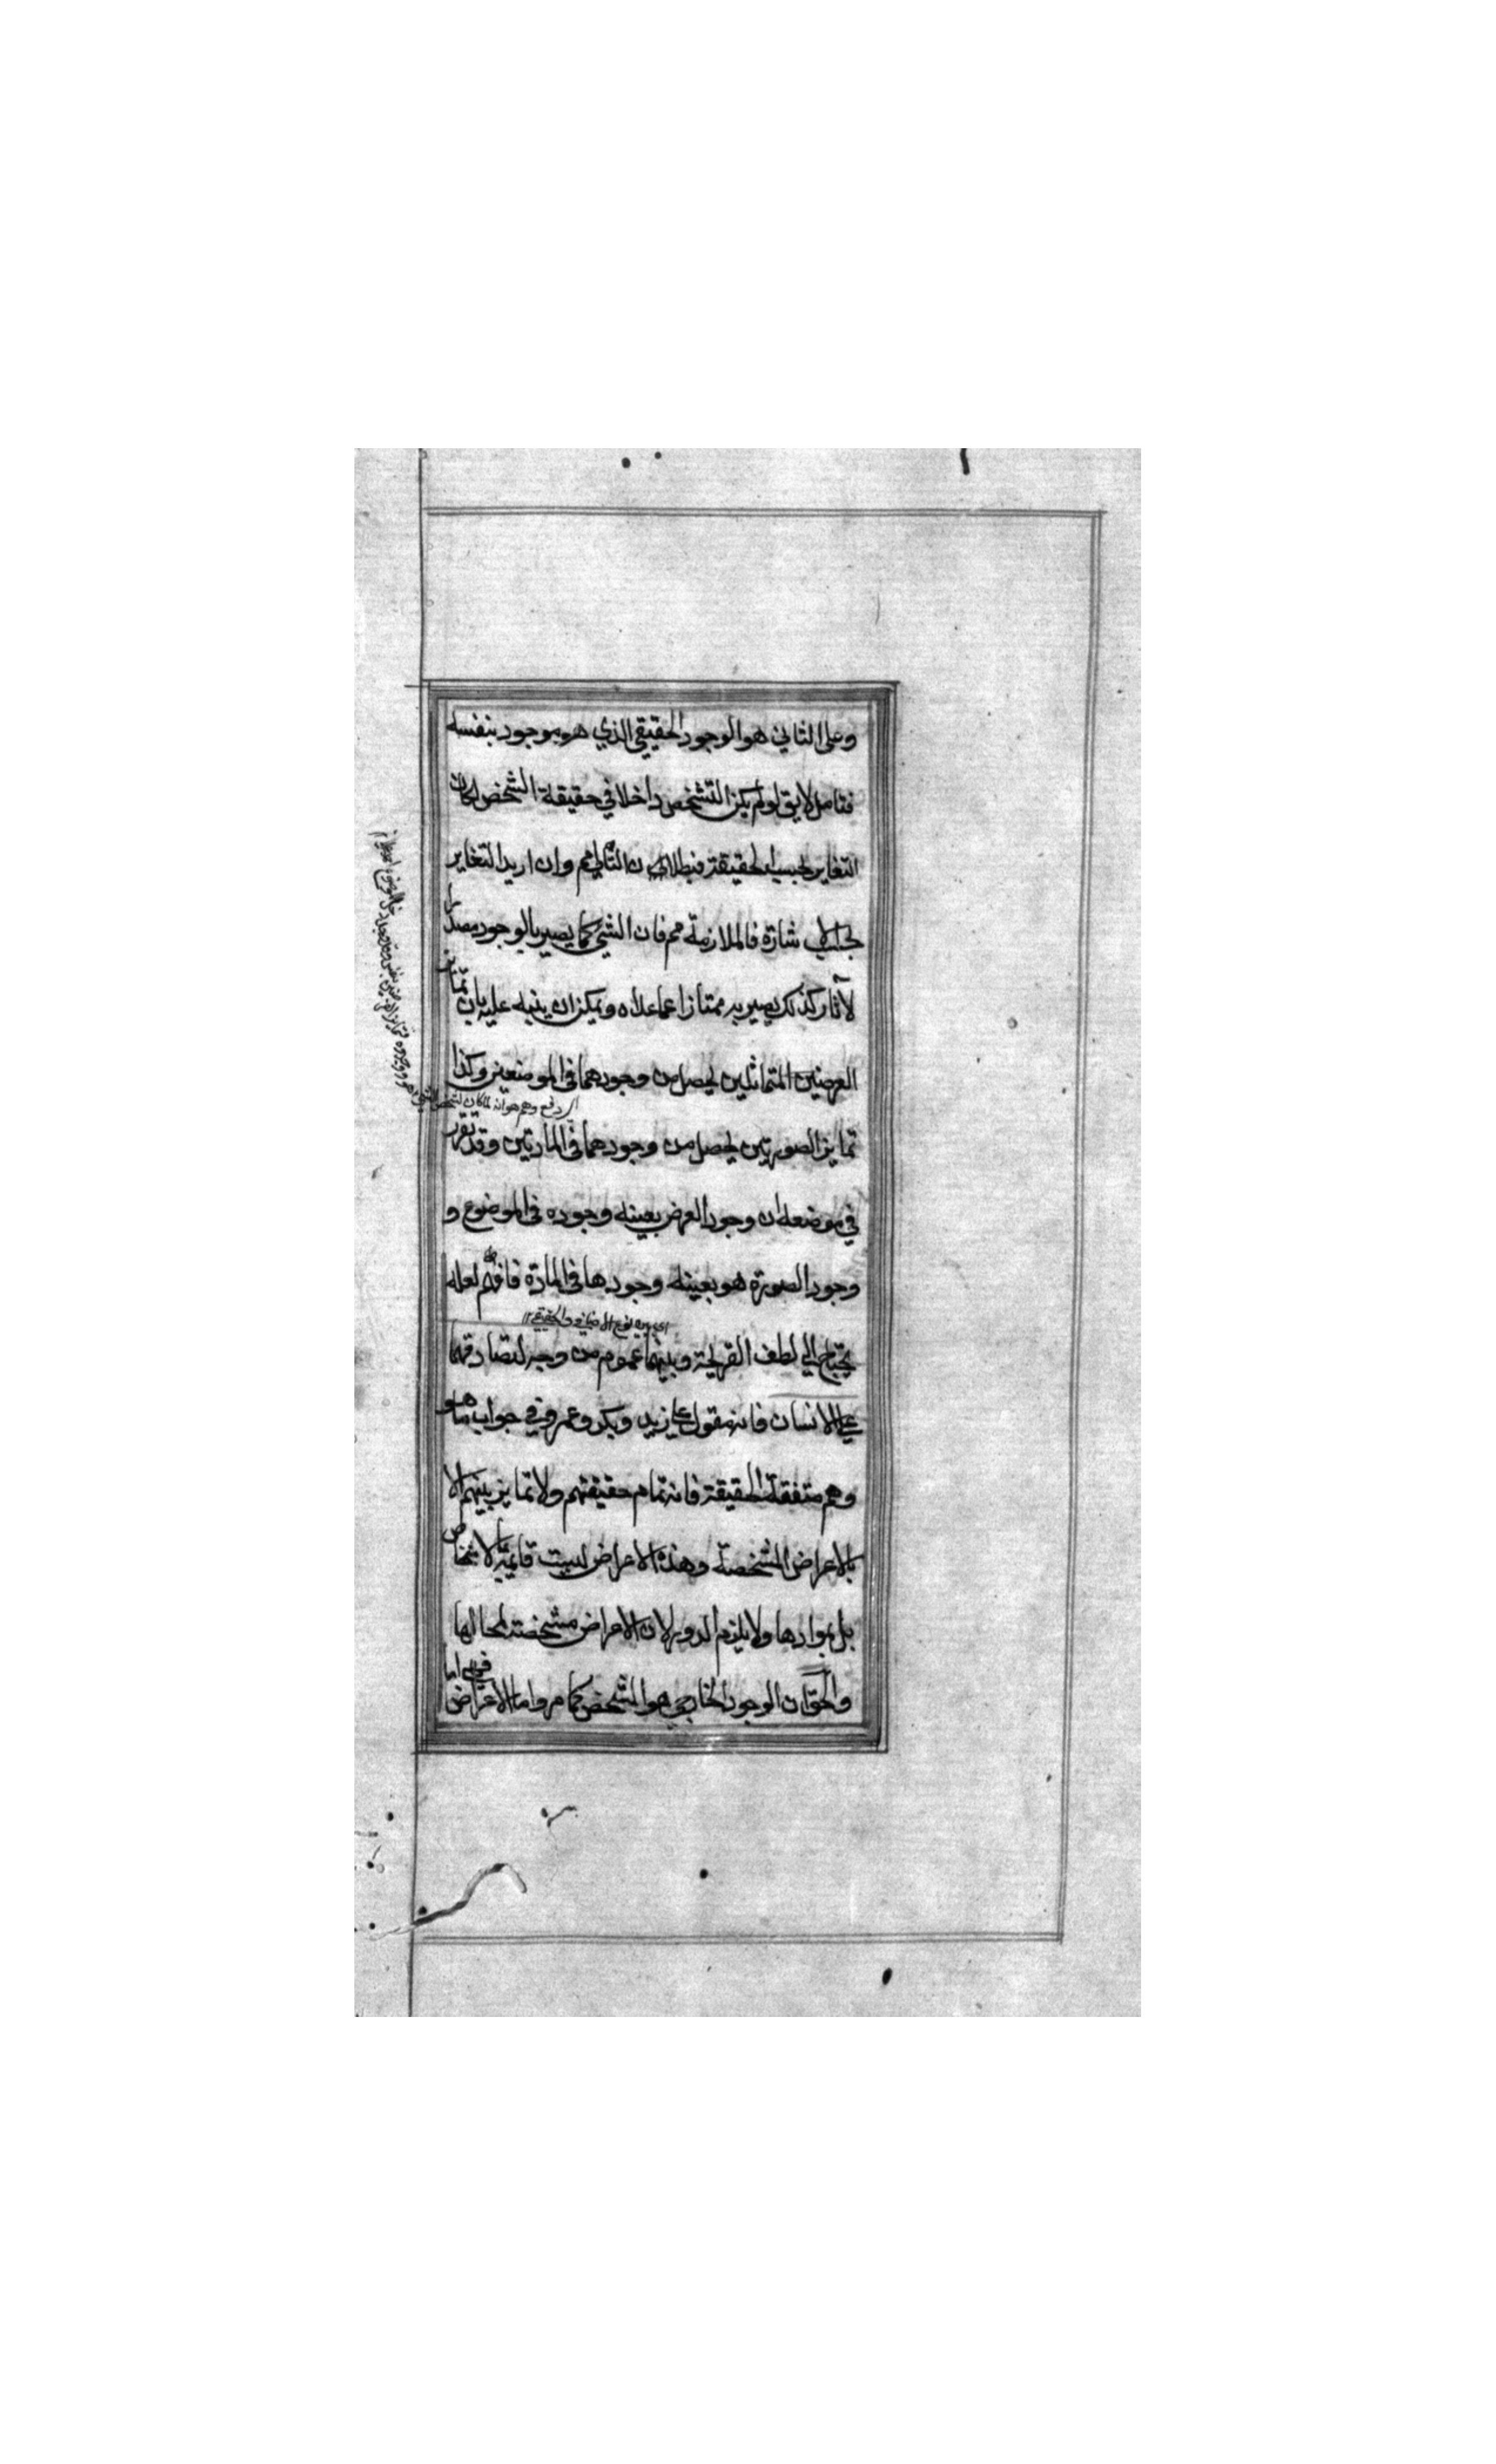 وعلى الثاني هو الوجود الحقيقي الذي هو موجود بنفسه
فتامل لا يق لو لم يكن التشخص داخلا في حقيقة الشخص لكان
التغاير بحسب الحقيقة فبطلان التالي مم وان اريد التغاير
بحسب الاشارة فالملازمة مم فان الشيء كما يصير بالوجود مصدرا
لآثار كذلك يصير به ممتازا عما عداه ويمكن ان ينبه عليه بان تمايز
العرضين المتماثلين يحصل من وجودهما في الموضعين وكذا
تمايز الصورتين يحصل من وجودهما في المادتين وقد تقرر
في موضعه ان وجود العرض بعينه وجوده في الموضوع و
وجود الصورة هو بعينه وجودها في المادة فافهم لعله
يحتاج الى لطف القريحة وبينهما عموم من وجه لتصادقهما
على الانسان فانه مقول على زيد وبكر وعمرو في جواب ما هو
وهم متفقة الحقيقة فانه تمام حقيقتهم ولا تمايز بينهم الا
بالاعراض المشخصة وهذه الاعراض ليست قايمة بالاشخاص
بل بموادها ولا يلزم الدور لان الاعراض مشخصة لمحالها
والحق ان الوجود الخارجي هو التشخص كما مر واما الاعراض فهي اما